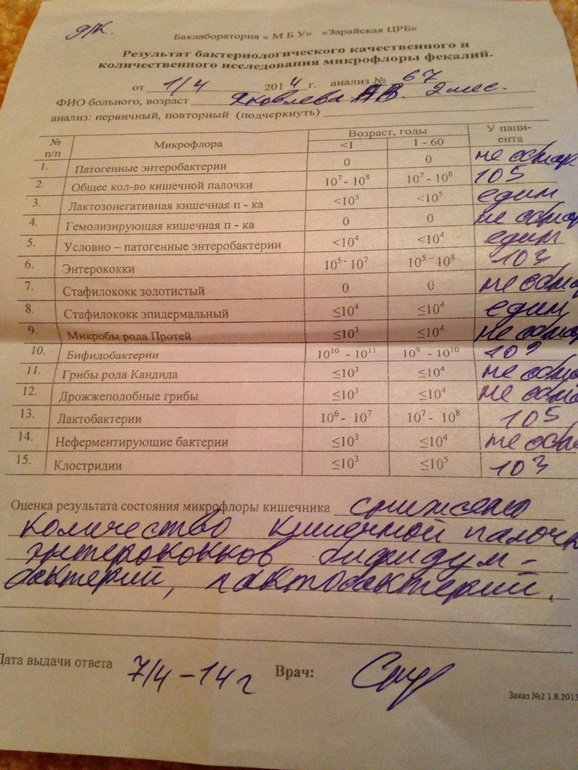 Я/К.
Баклаборатория « М Б У» «Зарайская ЦРБ»
Результат бактериологического качественного и
количественного исследования микрофлоры фекалий.
от 1/4 2014 г. анализ № 67
ФИО больного, возраст Яковлева А В. 2 мес.
анализ: первичный, повторный (подчеркнуть)
№ п/п Микрофлора Возраст, годы У паци-
<1 1 - 60 ента
1. Патогенные энтеробактерии 0 0 не обнар
2. Общее кол-во кишечной палочки 10⁷ - 10⁸ 10⁷ - 10⁸ 10⁵
3. Лактозонегативная кишечная п - ка <10⁵ <10⁵ един
4. Гемолизирующая кишечная п - ка 0 0 не обнар
5. Условно – патогенные энтеробактерии <10⁴ <10⁴ един
6. Энтерококки 10⁵ - 10⁷ 10⁵ - 10⁸ 10³
7. Стафилококк золотистый 0 0 не обна
8. Стафилококк эпидермальный ≤10⁴ ≤10⁴ един
9. Микробы рода Протей ≤10³ ≤10⁴ не обнар
10. Бифидобактерии 10¹⁰ - 10¹¹ 10⁹ - 10¹⁰ 10⁹
11. Грибы рода Кандида ≤10³ ≤10⁴ не обна
12. Дрожжеподобные грибы ≤10³ ≤10⁴ не обна
13. Лактобактерии 10⁶ - 10⁷ 10⁷ - 10⁸ 10⁵
14. Неферментирующие бактерии ≤10³ ≤10⁴ не обна
15. Клостридии ≤10³ ≤10⁵ 10³
Оценка результата состояния микрофлоры кишечника снижено
количество кишечной палочк
энтерококков бифидум-
бактерий, лактобактерий.
Дата выдачи ответа 7/4-14г Врач:
Заказ №2 1.8.2013